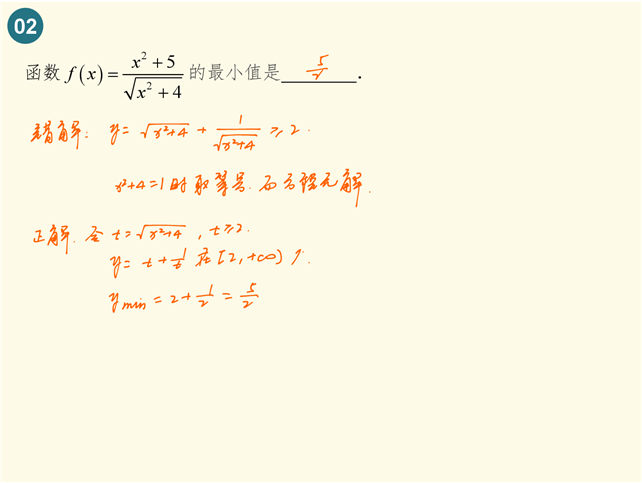 02
函数 f(x) = (x² + 5)/√(x² + 4) 的最小值是 5/2 .
错解: y = √(x²+4) + 1/√(x²+4) ≥ 2.
x²+4=1 时取等号. 而方程无解.
正解. 令 t = √(x²+4) , t≥2.
y = t + 1/t 在 [2, +∞) ↑.
y min = 2 + 1/2 = 5/2